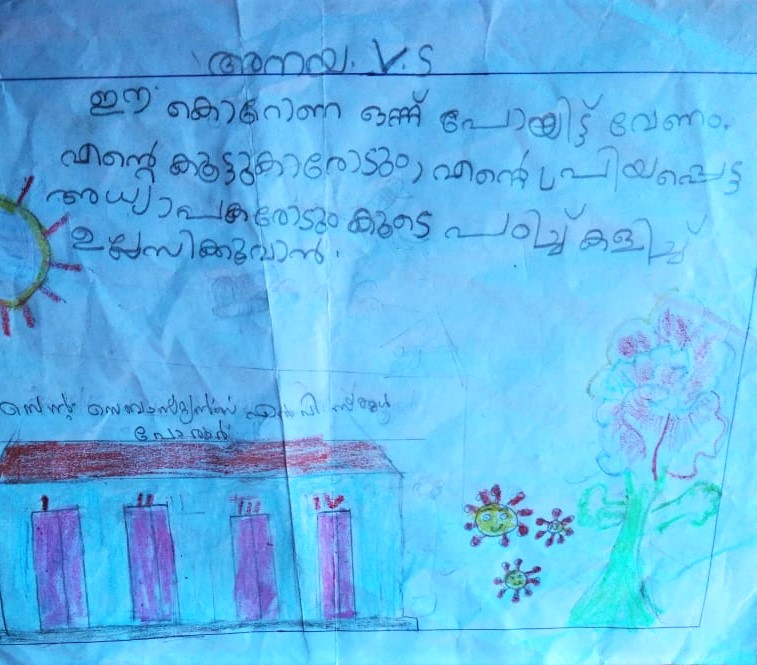 അനയ. V. S
ഈ കൊറോണ ഒന്ന് പോയിട്ട് വേണം.
എന്റെ കൂട്ടുകാരോടും, എന്റെ പ്രിയപ്പെട്ട
അധ്യാപകരോടും കൂടെ പഠിച്ച് കളിച്ച്
ഉല്ലസിക്കുവാൻ.
സെന്റ് സെബാസ്റ്റ്യൻസ് എൽ പി സ്കൂൾ
പോത്തൻ
I II III IV